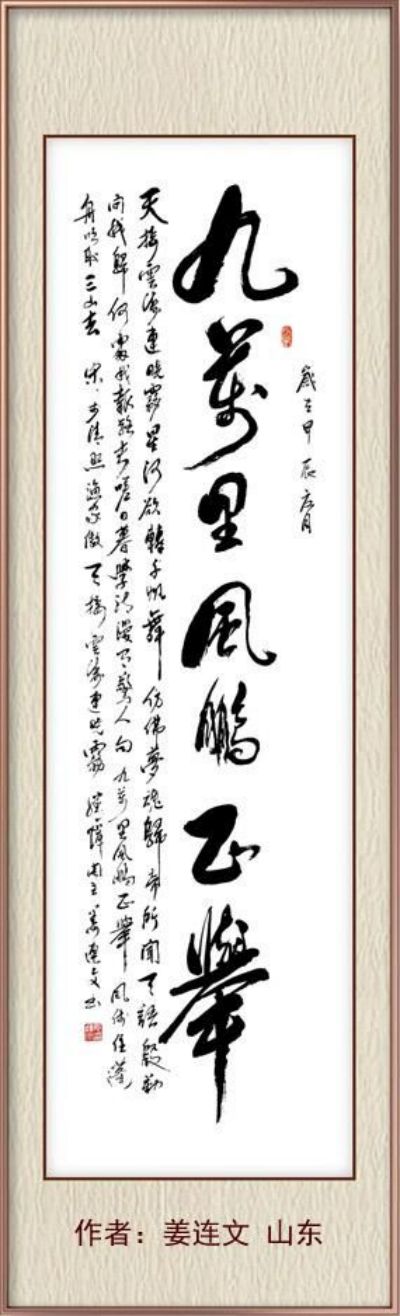 歲在甲辰
九萬里風鵬正舉
天接雲濤連曉霧星河欲轉千帆舞仿佛夢魂歸帝所聞天語殷勤
問我歸何處我報路長嗟日暮學詩漫有驚人句九萬里風鵬正舉風休住蓬
舟吹取三山去 宋李清照漁家傲天接雲濤連曉霧 姜連文書
作者：姜连文 山东